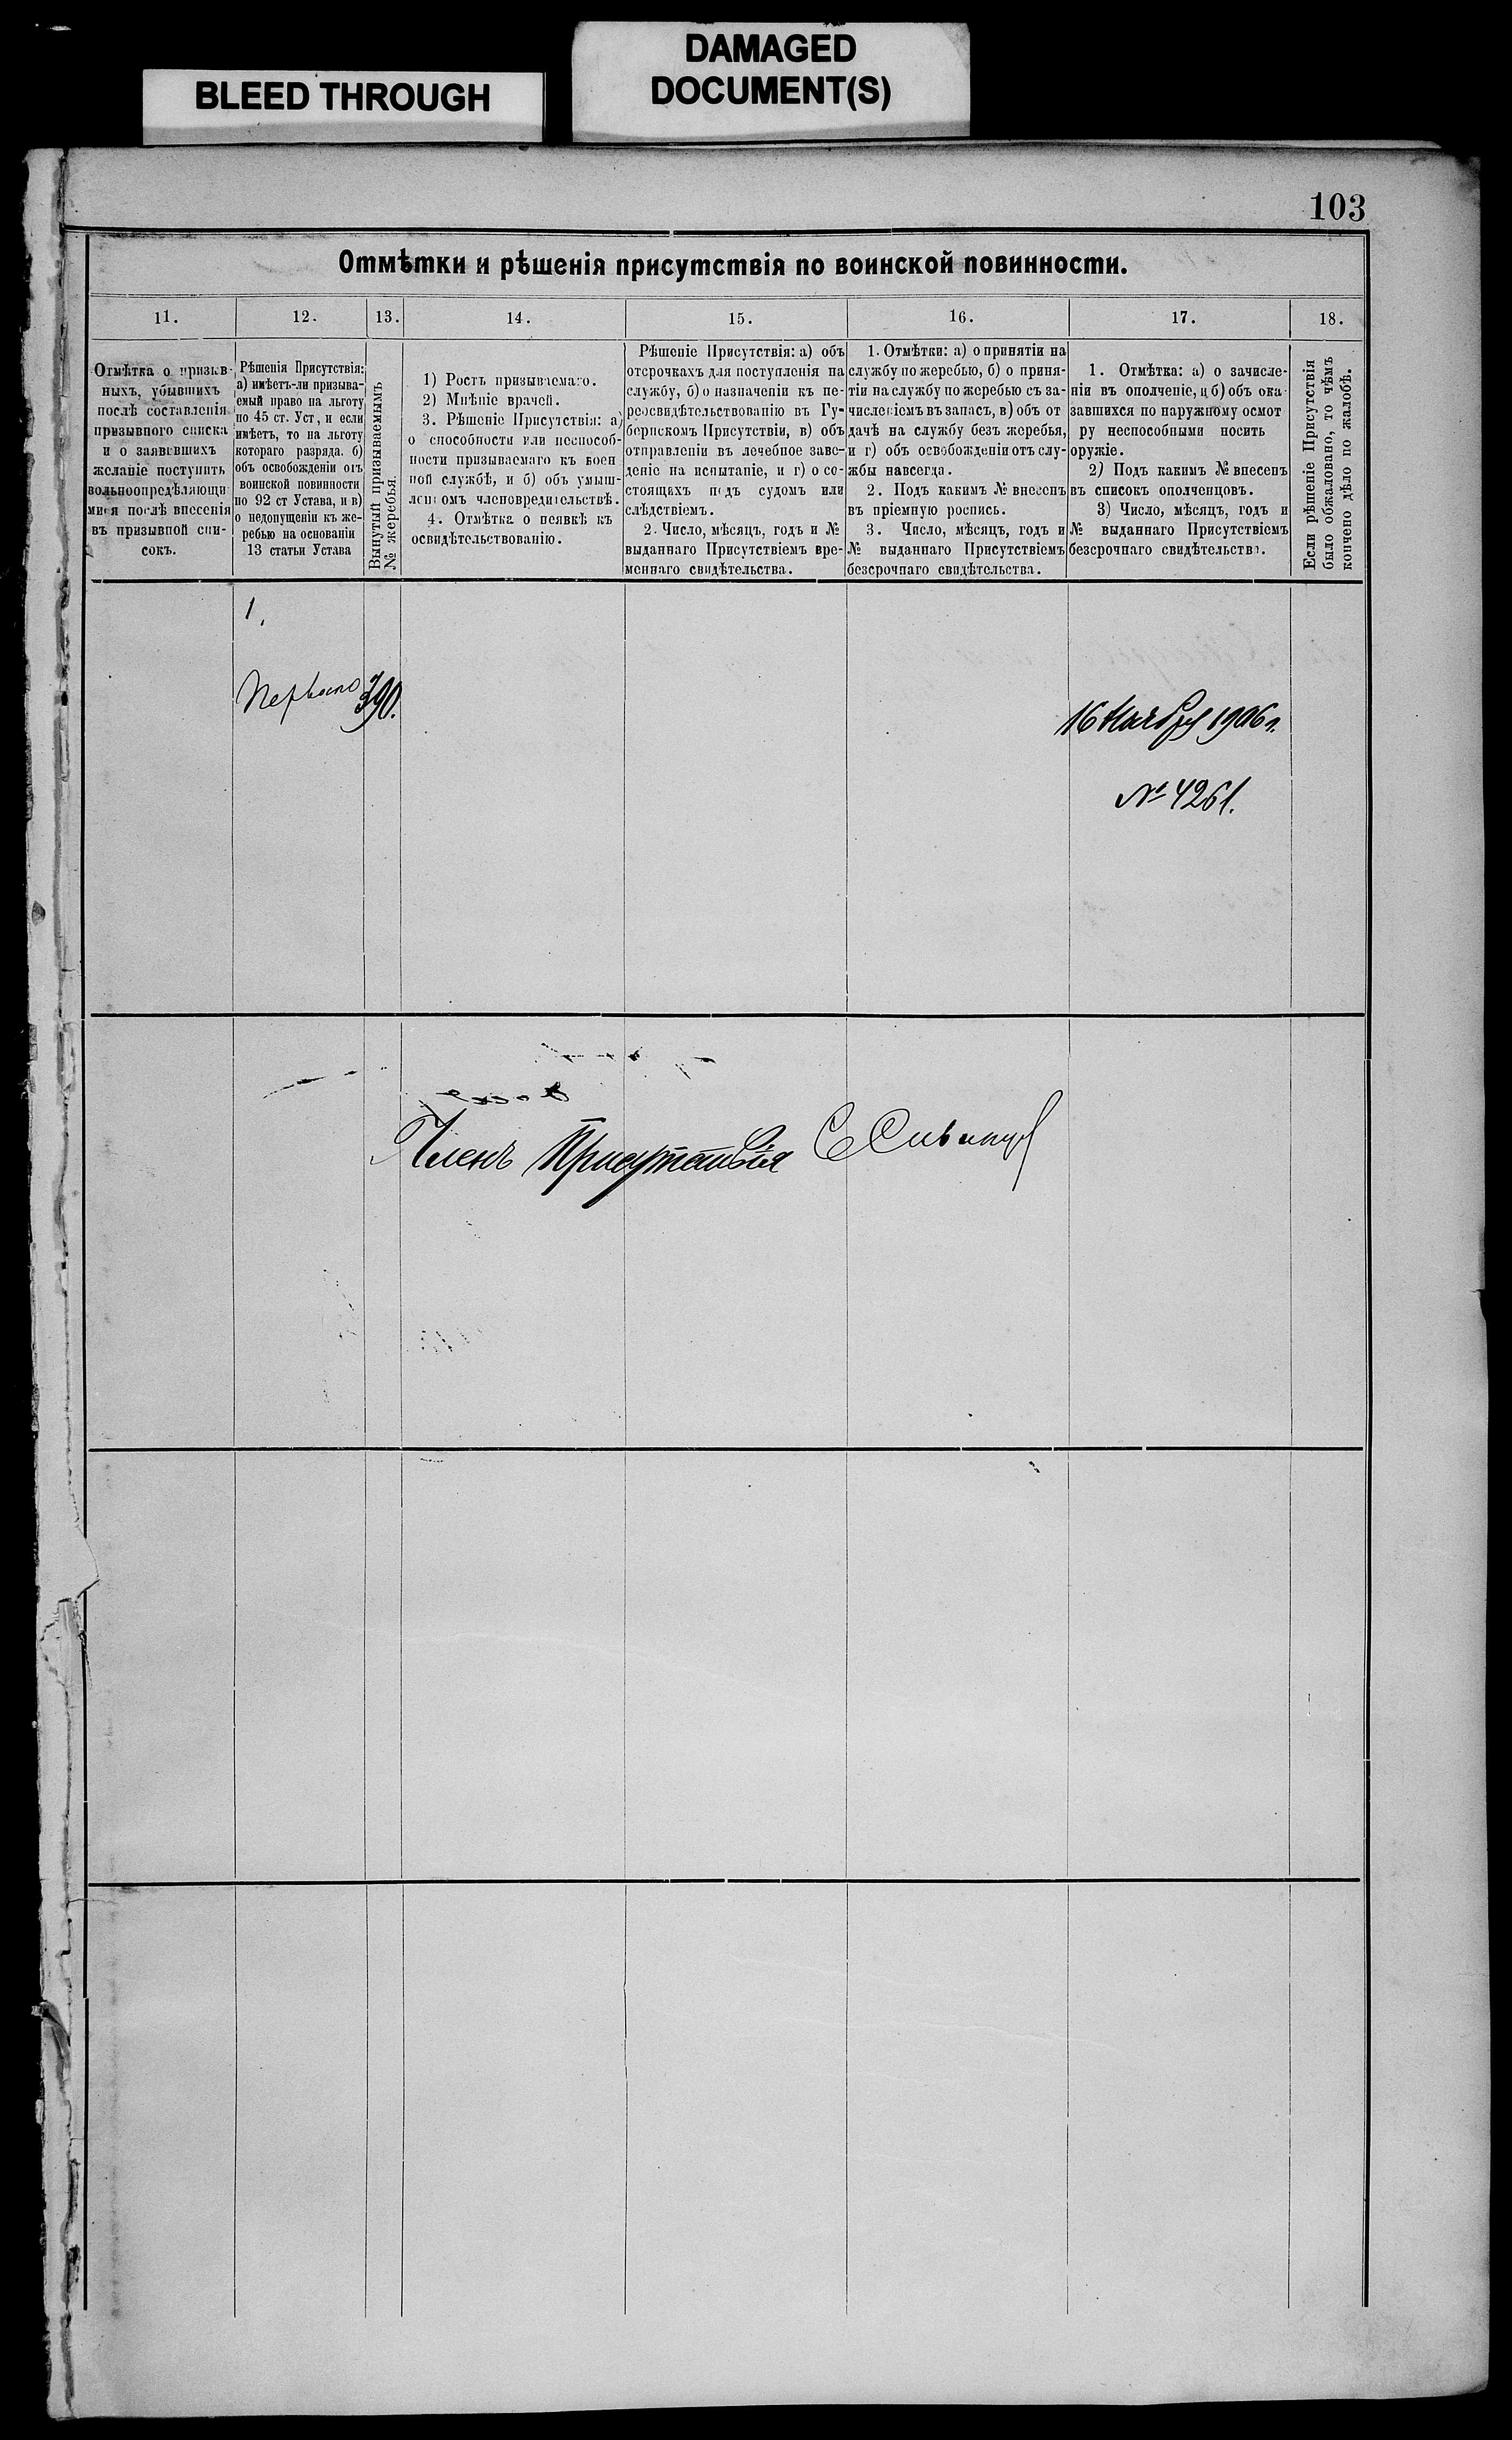 BLEED THROUGH
DAMAGED
DOCUMENT(S)
103
Отмѣтки и рѣшенія присутствія по воинской повинности.
11.
12.
13.
14.
15.
16.
17.
18.
Отмѣтка о призыв-
ныхъ, убывшихъ
послѣ составленія
призывного списка
и о заявившихъ
желаніе поступить
вольноопредѣляющи
мися послѣ внесенія
въ призывной спи-
сокъ.
Рѣшенія Присутствія:
а) имѣетъ-ли призыва-
емый право на льготу
по 45 ст. Уст, и если
имѣетъ, то на льготу
котораго разряда. б)
объ освобожденіи отъ
воинской повинности
по 92 ст Устава, и в)
о недопущеніи къ же-
ребью на основаніи
13 статьи Устава
Вынутый призываемымъ
№ жеребья.
1) Ростъ призываемаго.
2) Мнѣніе врачей.
3. Рѣшеніе Присутствія: а)
о способности или неспособ-
ности призываемаго къ воен
ной службѣ, и б) объ умыш-
ленномъ членовредительствѣ.
4. Отмѣтка о неявкѣ къ
освидѣтельствованію.
Рѣшеніе Присутствія: а) объ
отсрочкахъ для поступленія на
службу, б) о назначеніи къ пе-
реосвидѣтельствованію въ Гу-
бернскомъ Присутствіи, в) объ
отправленіи въ лечебное заве-
деніе на испытаніе, и г) о со-
стоящихъ подъ судомъ или
слѣдствіемъ.
2. Число, мѣсяцъ, годъ и №
выданнаго Присутствіемъ вре-
меннаго свидѣтельства.
1. Отмѣтки: а) о принятіи на
службу по жеребью, б) о приня-
тіи на службу по жеребью съ за-
численіемъ въ запасъ, в) объ от
дачѣ на службу безъ жеребья,
и г) объ освобожденіи отъ слу-
жбы навсегда.
2. Подъ какимъ № внесенъ
въ пріемную роспись.
3. Число, мѣсяцъ, годъ и
№ выданнаго Присутствіемъ
безсрочнаго свидѣтельства.
1. Отмѣтка: а) о зачисле-
ніи въ ополченіе, и б) объ ока
завшихся по наружному осмот
ру неспособными носить
оружіе.
2) Подъ какимъ № внесенъ
въ списокъ ополченцовъ.
3) Число, мѣсяцъ, годъ и
№ выданнаго Присутствіемъ
безсрочнаго свидѣтельства.
Если рѣшеніе Присутствія
было обжаловано, то чѣмъ
кончено дѣло по жалобѣ.
1.
390.
16 Ноября 1906 г.
№ 4261.
Членъ Присутствія